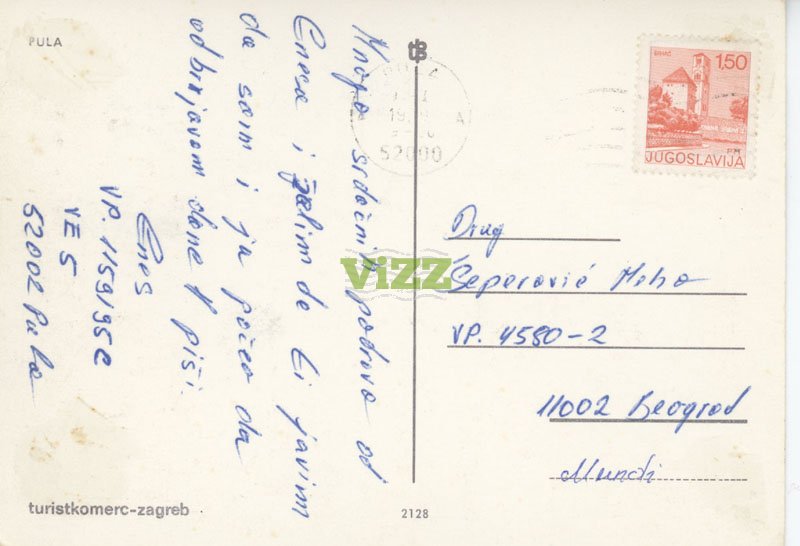 PULA
Mnogo srdačnih pozdrava od
Enesa i želim da ti javim
da sam i ja počeo da
odbrojavam dane piši.
Enes
VP. 1159/95c
VE 5
52002 Pula
turistkomerc-zagreb
2128
tB
52000
BIHAĆ
1,50
JUGOSLAVIJA
Drug
Šeperović Meho
VP. 4580-2
11002 Beograd
ViZZ